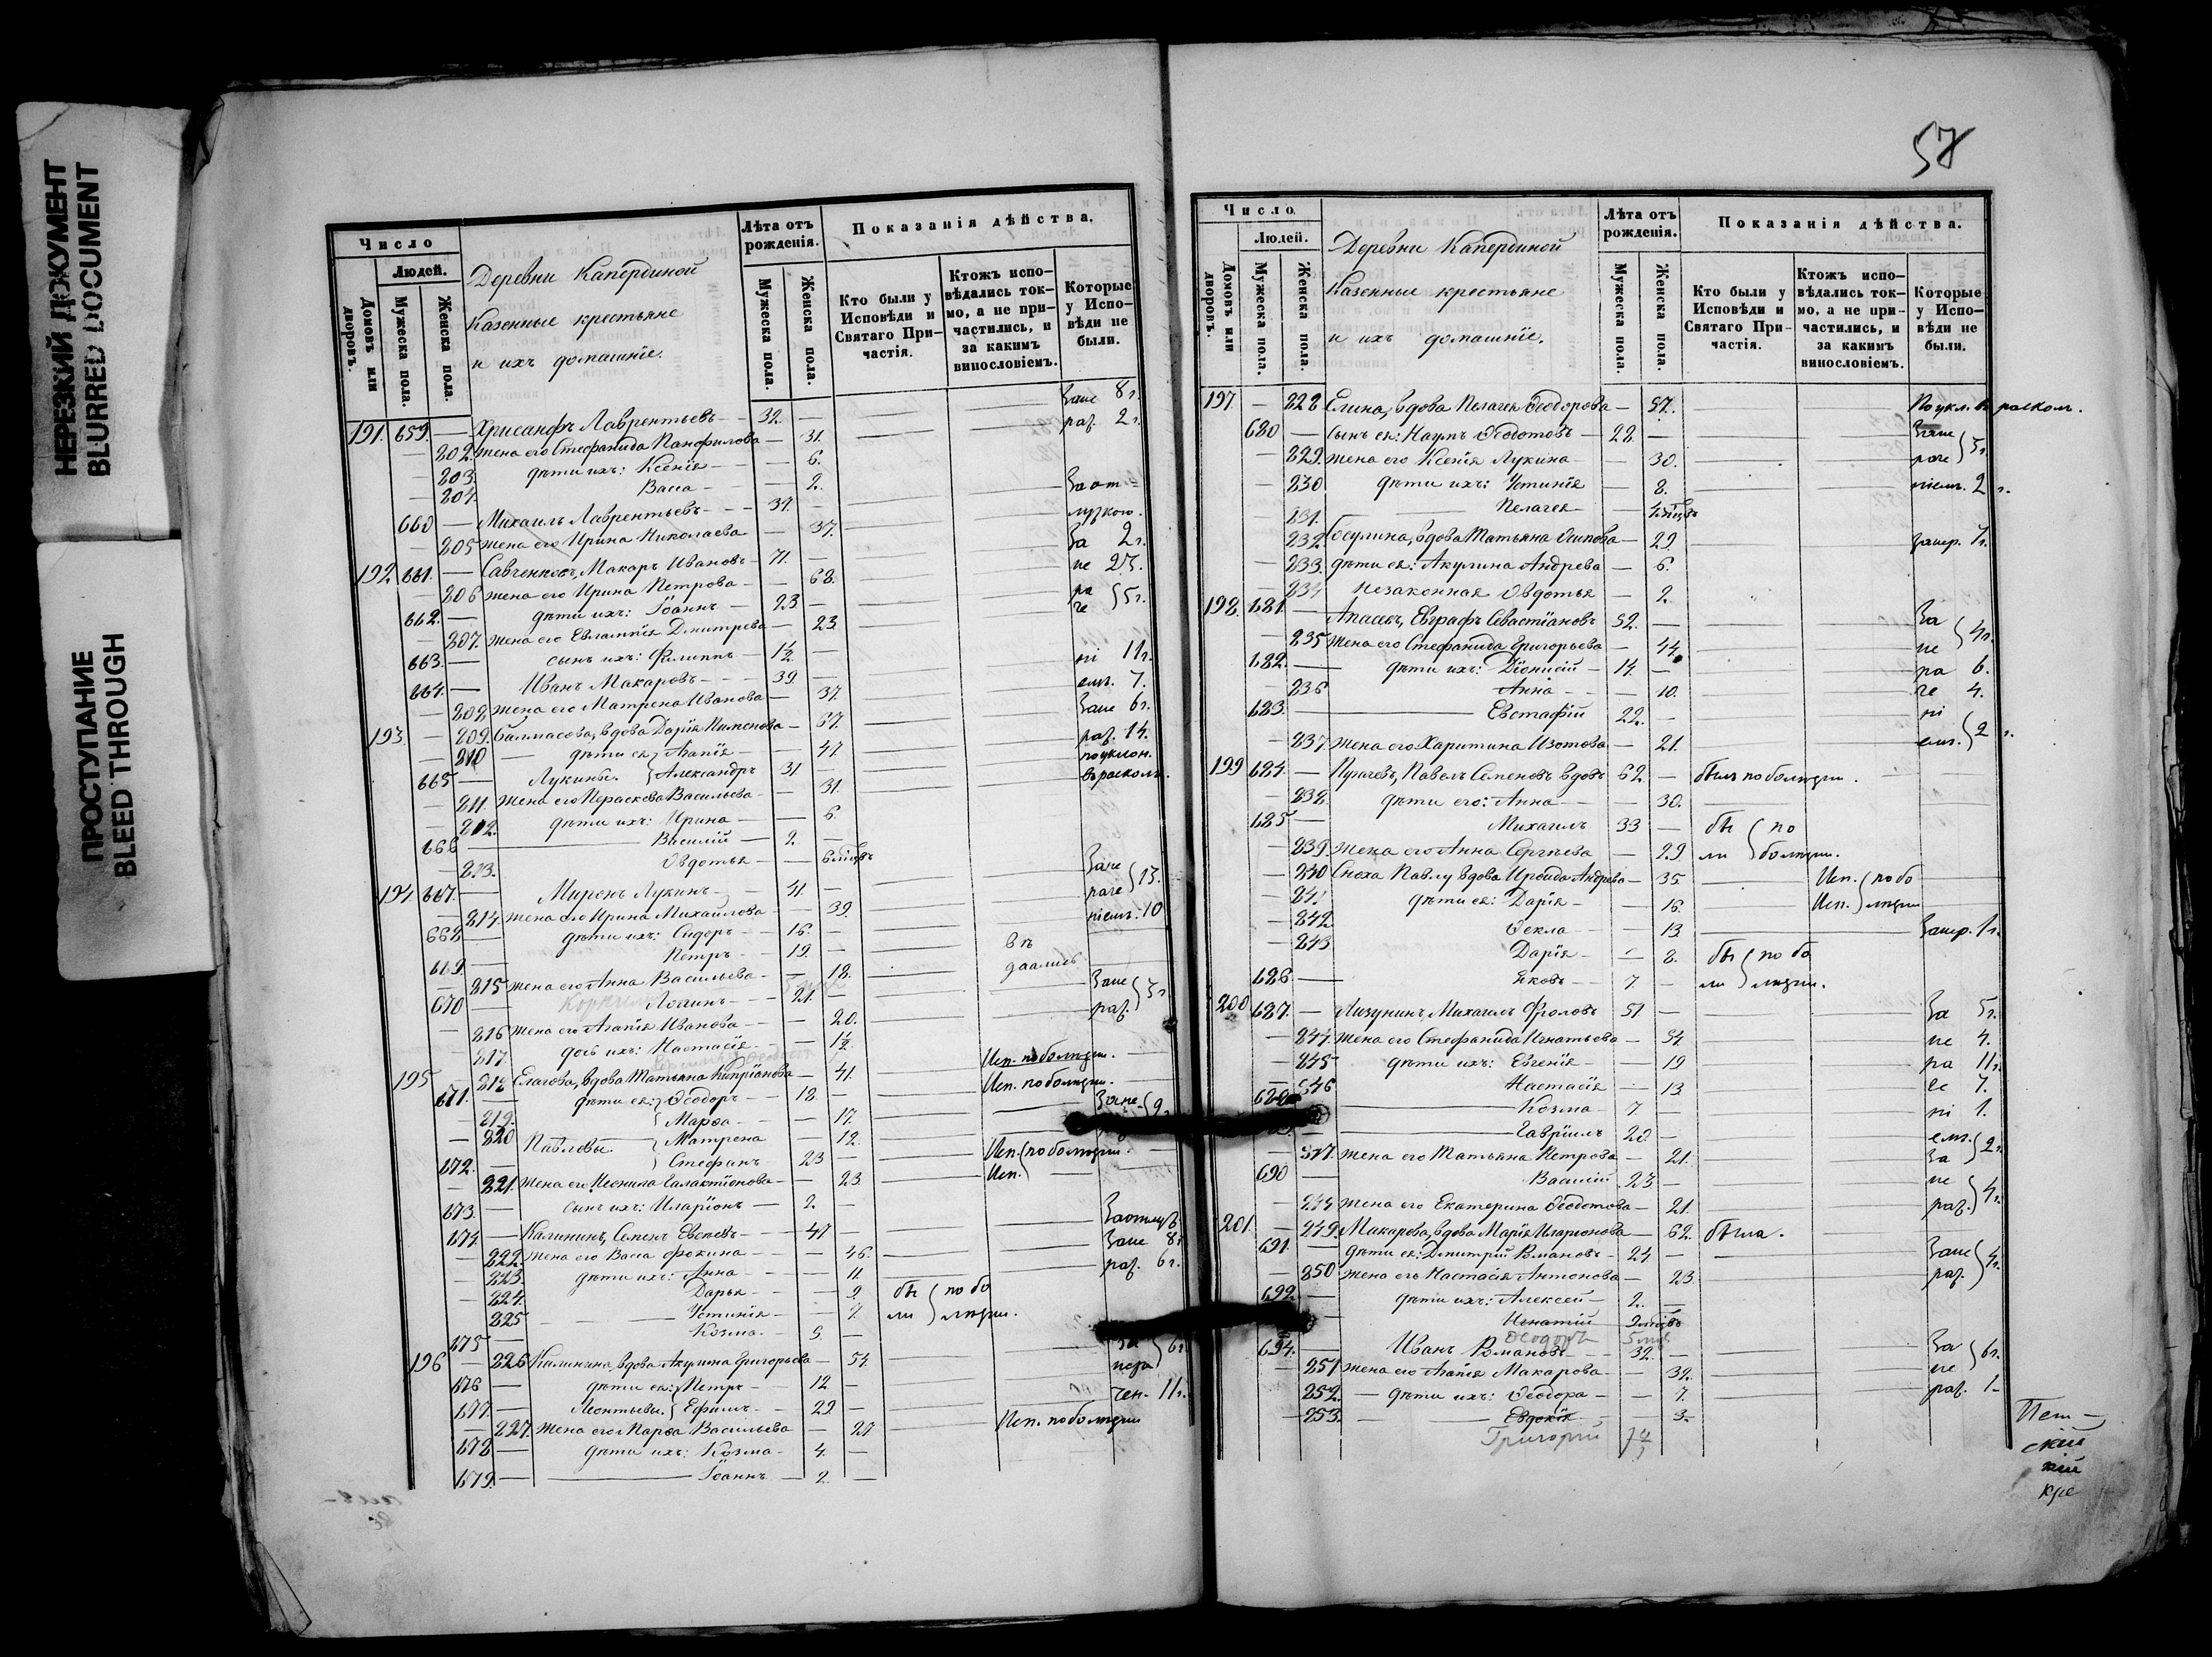 НЕРЕЗКИЙ ДОКУМЕНТ
BLURRED DOCUMENT
ПРОСТУПАНИЕ
BLEED THROUGH
Число
Людей.
Домовъ или дворовъ.
Мужеска пола.
Женска пола.
Деревни Капердиной
Казенные крестьяне
и ихъ домашніе.
Лѣта отъ рожденія.
Мужеска пола.
Женска пола.
Показанія дѣйства.
Кто были у Исповѣди и Святаго Причастія.
Ктожъ исповѣдались токмо, а не причастились, и за какимъ винословіемъ.
Которые у Исповѣди не были.
191. 659. — Хрисанфъ Лаврентьевъ — 32. — Зане 8 г.
— 202. жена его Стефанида Панфилова — 31. раз. 2 г.
— 203. дѣти ихъ: Ксенія — 6.
— 204. Васса — 2.
660 — Михаилъ Лаврентьевъ — 39. — За от-
— 205 жена его Ирина Николаева — 37. лучкою.
192 661. — Савченковъ, Макаръ Ивановъ 71. — За 2 г.
— 206 жена его Ирина Петрова — 68. не 25.
662. — дѣти ихъ: Іоаннъ — 23 — ра
— 207. жена его Евлампія Дмитрева — 23. че } 5 г.
663. — сынъ ихъ: Филиппъ — 1½ —
664. — Иванъ Макаровъ — 39. — ні 11 г.
— 208 жена его Матрена Иванова — 37. емъ. 7.
193. — 209. Балмасова, вдова Дарія Пименова — 67. Зане 6 г.
— 210 — дѣти ея Агапія — 41 раз. 14.
665 — Лукины. Александръ 31 — по уклон.
— 211. жена его Параскева Васильева — 31. въ расколъ.
— 212. дѣти ихъ: Ирина — 6.
666 — Василій — 2. —
— 213. Овдотья — 6 мѣсцвъ
194. 667. — Миронъ Лукинъ — 41 — Зане
— 214. жена его Ирина Михайлова — 39. раче } 13.
668 — дѣти ихъ: Сидоръ — 16. — ніемъ. 10
669. — Петръ — 19. —
— 215 жена его Анна Васильева — 18.
670 — Логинъ — 21. — Зане
— 216 жена его Агапія Иванова — 20. раз. } 3 г
— 217. дочь ихъ: Настасія — 1½
195 — 218 Елагова, вдова Татьяна Кипріанова — 41. Исп. по болѣзни.
671. — дѣти ея: Ѳеодоръ — 18. — Исп. по болѣзни.
— 219. Марѳа — 17. Зане
— 220 Павловы. Матрена — 12.
672. — Стефанъ 23 — Исп. } по болѣзни.
— 221. жена его Неонила Галактіонова — 23. Исп.
673. — сынъ ихъ: Иларіонъ — 2. —
674 — Калининъ, Семенъ Евсеевъ — 47 — За отлуч.
— 222. жена его Васса Фокина — 46. Зане 8 г
— 223. дѣти ихъ: Анна — 11. раз. 6 г.
— 224. Дарья — 9. бы } по бо
— 225 Устинія — 7. ли } лѣзни.
675 — Козма. — 3. —
196 — 226 Калинина, вдова Акулина Григорьева — 54. За } 6 г.
676 — дѣти ея: Петръ — 12 —
677. — Леонтьевы. Ефимъ — 29. — чен. 11 г.
— 227. жена его Марѳа Васильева — 27 Исп. по болѣзни
678 — дѣти ихъ: Козма — 4. —
679. — Іоаннъ — 2. —
57
Число.
Людей.
Домовъ или дворовъ.
Мужеска пола.
Женска пола.
Деревни Капердиной
Казенные крестьяне
и ихъ домашніе.
Лѣта отъ рожденія.
Мужеска пола.
Женска пола.
Показанія дѣйства.
Кто были у Исповѣди и Святаго Причастія.
Ктожъ исповѣдались токмо, а не причастились, и за какимъ винословіемъ.
Которые у Исповѣди не были.
197. — 228 Елина, вдова Пелагея Ѳеодорова — 57. По укл. въ расколъ.
680 — сынъ ея: Наумъ Ѳедотовъ — 28. — Зане
— 229. жена его Ксенія Лукина — 30. раче } 5 г.
— 230 дѣти ихъ: Устинія — 8. ніемъ. 2 г.
231. Пелагея —
232. вдова Татьяна Осипова — 29. занер. 7 г.
— 233. дѣти ея: Акулина Андрева — 6.
234 незаконная Овдотья — 2.
198. 681. — Апасевъ, Евграфъ Севастіановъ 52. — За
— 235 жена его Стефанида Григорьева — 44. не } 4 г.
682. — дѣти ихъ: Діонисій — 14. — ра 6.
236 Анна — 10. че 4.
683. — Евстафій 22. — ні
— 237. жена его Харитина Изотова — 21. емъ. } 2 г.
199 684. — Пугачевъ, Павелъ Семеновъ вдовъ 62 — былъ по болѣзни.
— 238. дѣти его: Анна — 30.
685 — Михаилъ 33 — бы } по
— 239. жена его Анна Сергѣева — 29 ли } болѣзни.
— 240 Сноха Павлу вдова Ироида Андрева — 35. Исп. } по бо
— 241 дѣти ея: Дарія — 16. Исп. } лѣзни
— 242 Ѳекла — 13. Занер. 1 г.
— 243 Дарія — 8. бы } по бо
686. — Яковъ — 7 — ли } лѣзни.
200 687. — Лизунинъ Михаилъ Фроловъ 51 — За 5 г.
— 244. жена его Стефанида Игнатьева — 54. не 4.
— 245 дѣти ихъ: Евгенія — 19 ра 11 г.
— 246 Настасія — 13. че 7.
Козма — 7. — ні 1.
Гавріилъ 20. — емъ. } 2 г.
— 247. жена его Татьяна Петрова — 21. За
690 — Василій 23 — не
— 248 жена его Екатерина Ѳедотова — 21. раз. } 4 г.
201. — 249. Макарова, вдова Марія Иларионова — 62. была.
691 — дѣти ея: Дмитрій Романовъ — 24 — Зане } 4 г.
— 250 жена его Настасія Антонова — 23. раз.
692 — дѣти ихъ: Алексей — 2. —
Игнатій
Ѳеодоръ 5
694. — Иванъ Романовъ — 32. — За } 6 г.
— 251 жена его Агапія Макарова — 32. не
— 252. — дѣти ихъ: Ѳеодора — 7. раз. 1.
— 253. Евдокія — 3.
Григорій